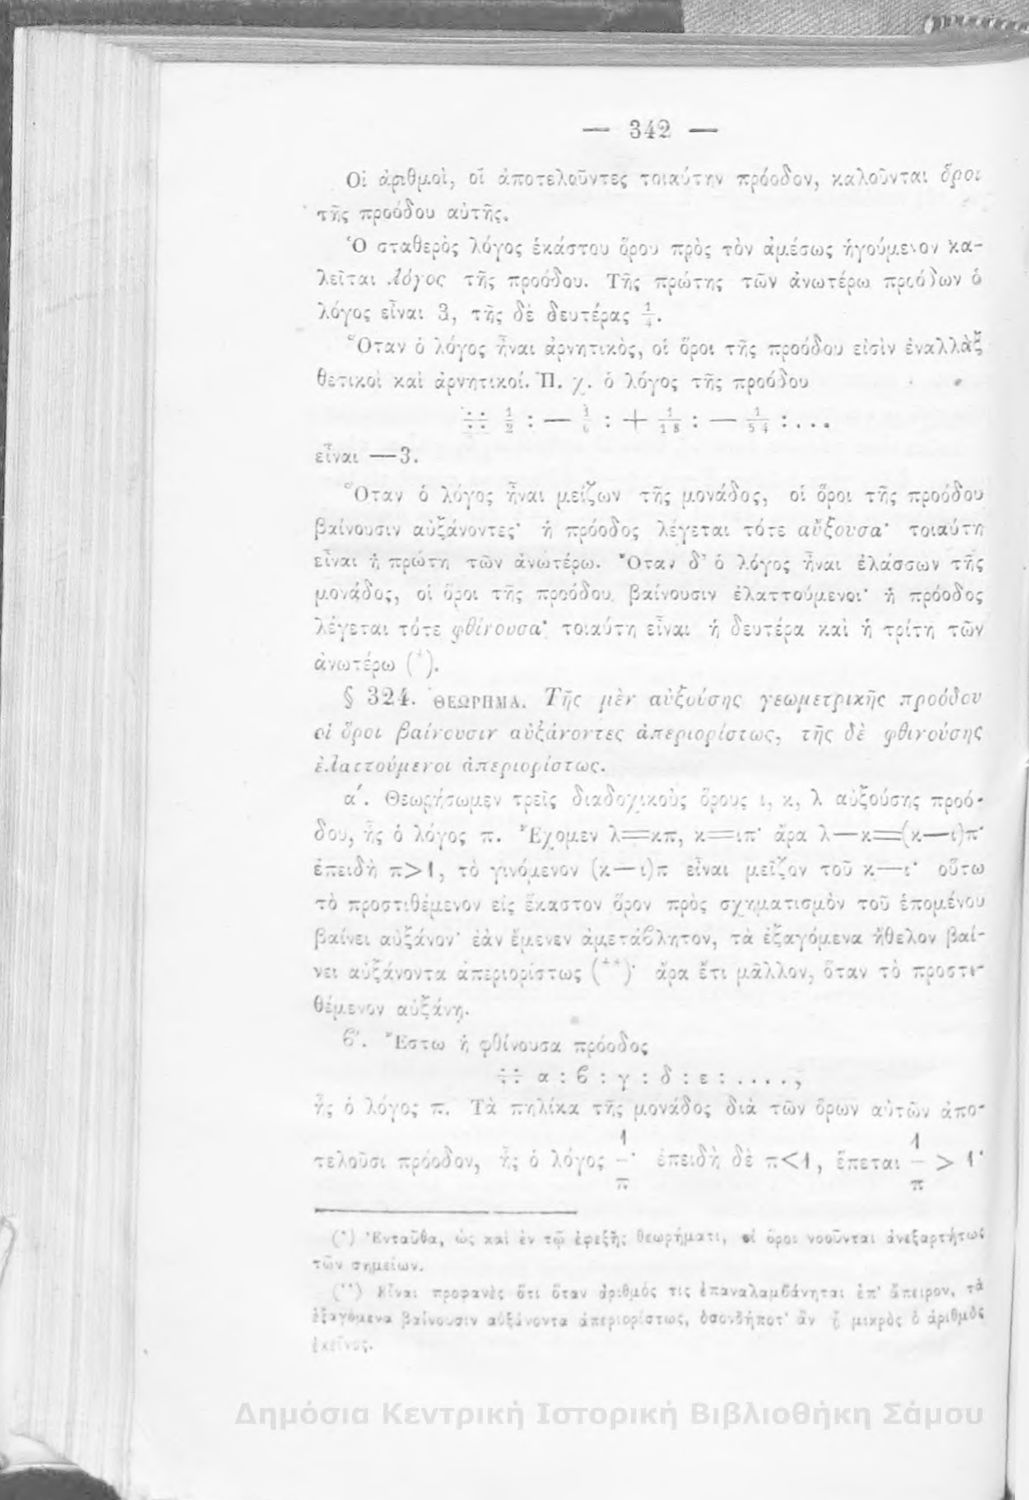 — 342 —
Οἱ ἀριθμοὶ, οἳ ἀποτελοῦντες τοιαύτην πρόοδον, καλοῦνται ὅροι
τῆς προόδου αὐτῆς.
Ὁ σταθερὸς λόγος ἑκάστου ὅρου πρὸς τὸν ἀμέσως ἡγούμενον κα-
λεῖται λόγος τῆς προόδου. Τῆς πρώτης τῶν ἀνωτέρω προόδων ὁ
λόγος εἶναι 3, τῆς δὲ δευτέρας 1/4.
Ὅταν ὁ λόγος ἦναι ἀρνητικὸς, οἱ ὅροι τῆς προόδου εἰσὶν ἐναλλὰξ
θετικοὶ καὶ ἀρνητικοί. Π. χ. ὁ λόγος τῆς προόδου
∺ 1/2 : — 1/6 : + 1/18 : — 1/54 : ....
εἶναι —3.
Ὅταν ὁ λόγος ἦναι μείζων τῆς μονάδος, οἱ ὅροι τῆς προόδου
βαίνουσιν αὐξάνοντες· ἡ πρόοδος λέγεται τότε αὔξουσα· τοιαύτη
εἶναι ἡ πρώτη τῶν ἀνωτέρω. Ὅταν δ' ὁ λόγος ἦναι ἐλάσσων τῆς
μονάδος, οἱ ὅροι τῆς προόδου βαίνουσιν ἐλαττούμενοι· ἡ πρόοδος
λέγεται τότε φθίνουσα· τοιαύτη εἶναι ἡ δευτέρα καὶ ἡ τρίτη τῶν
ἀνωτέρω (*).
§ 324. ΘΕΩΡΗΜΑ. Τῆς μὲν αὐξούσης γεωμετρικῆς προόδου
οἱ ὅροι βαίνουσιν αὐξάνοντες ἀπεριορίστως, τῆς δὲ φθινούσης
ἐλαττούμενοι ἀπεριορίστως.
α'. Θεωρήσωμεν τρεῖς διαδοχικοὺς ὅρους ι, κ, λ αὐξούσης προό-
δου, ἧς ὁ λόγος π. Ἔχομεν λ=κπ, κ=ιπ· ἄρα λ—κ=(κ—ι)π·
ἐπειδὴ π>1, τὸ γινόμενον (κ—ι)π εἶναι μεῖζον τοῦ κ—ι· οὕτω
τὸ προστιθέμενον εἰς ἕκαστον ὅρον πρὸς σχηματισμὸν τοῦ ἑπομένου
βαίνει αὐξάνον· ἐὰν ἔμενεν ἀμετάβλητον, τὰ ἐξαγόμενα ἤθελον βαί-
νει αὐξάνοντα ἀπεριορίστως (**)· ἄρα ἔτι μᾶλλον, ὅταν τὸ προστι-
θέμενον αὐξάνῃ.
ϐ'. Ἔστω ἡ φθίνουσα πρόοδος
∺ α : ϐ : γ : δ : ε : .....,
ἧς ὁ λόγος π. Τὰ πηλίκα τῆς μονάδος διὰ τῶν ὅρων αὐτῶν ἀπο-
τελοῦσι πρόοδον, ἧς ὁ λόγος 1/π· ἐπειδὴ δὲ π<1, ἕπεται 1/π > 1·
(*) Ἐνταῦθα, ὡς καὶ ἐν τῷ ἐφεξῆς θεωρήματι, οἱ ὅροι νοοῦνται ἀνεξαρτήτως
τῶν σημείων.
(**) Εἶναι προφανὲς ὅτι ὅταν ἀριθμός τις ἐπαναλαμβάνηται ἐπ' ἄπειρον, τὰ
ἐξαγόμενα βαίνουσιν αὐξάνοντα ἀπεριορίστως, ὁσονδήποτ' ἂν ᾖ μικρὸς ὁ ἀριθμὸς
ἐκεῖνος.
Δημόσια Κεντρική Ιστορική Βιβλιοθήκη Σάμου